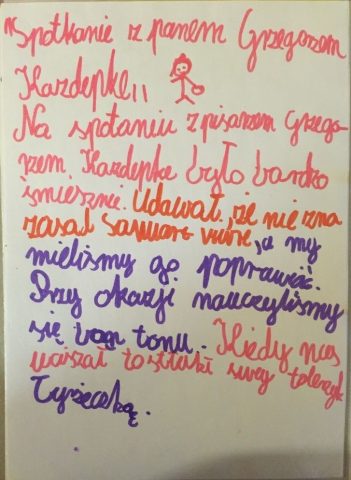 "Spotkanie z panem Grzegorzem
Kazdepke"
Na spotaniu z pisarzem Grzego-
rzem Kazdepke było bardzo
śmiesznie. Udawał, że nie zna
zasad savuare vivre, a my
mieliśmy go poprawiać.
Przy okazji nauczyliśmy
się bon tonu. Kiedy nas
to stukał swój talerzyk
łyżeczką.